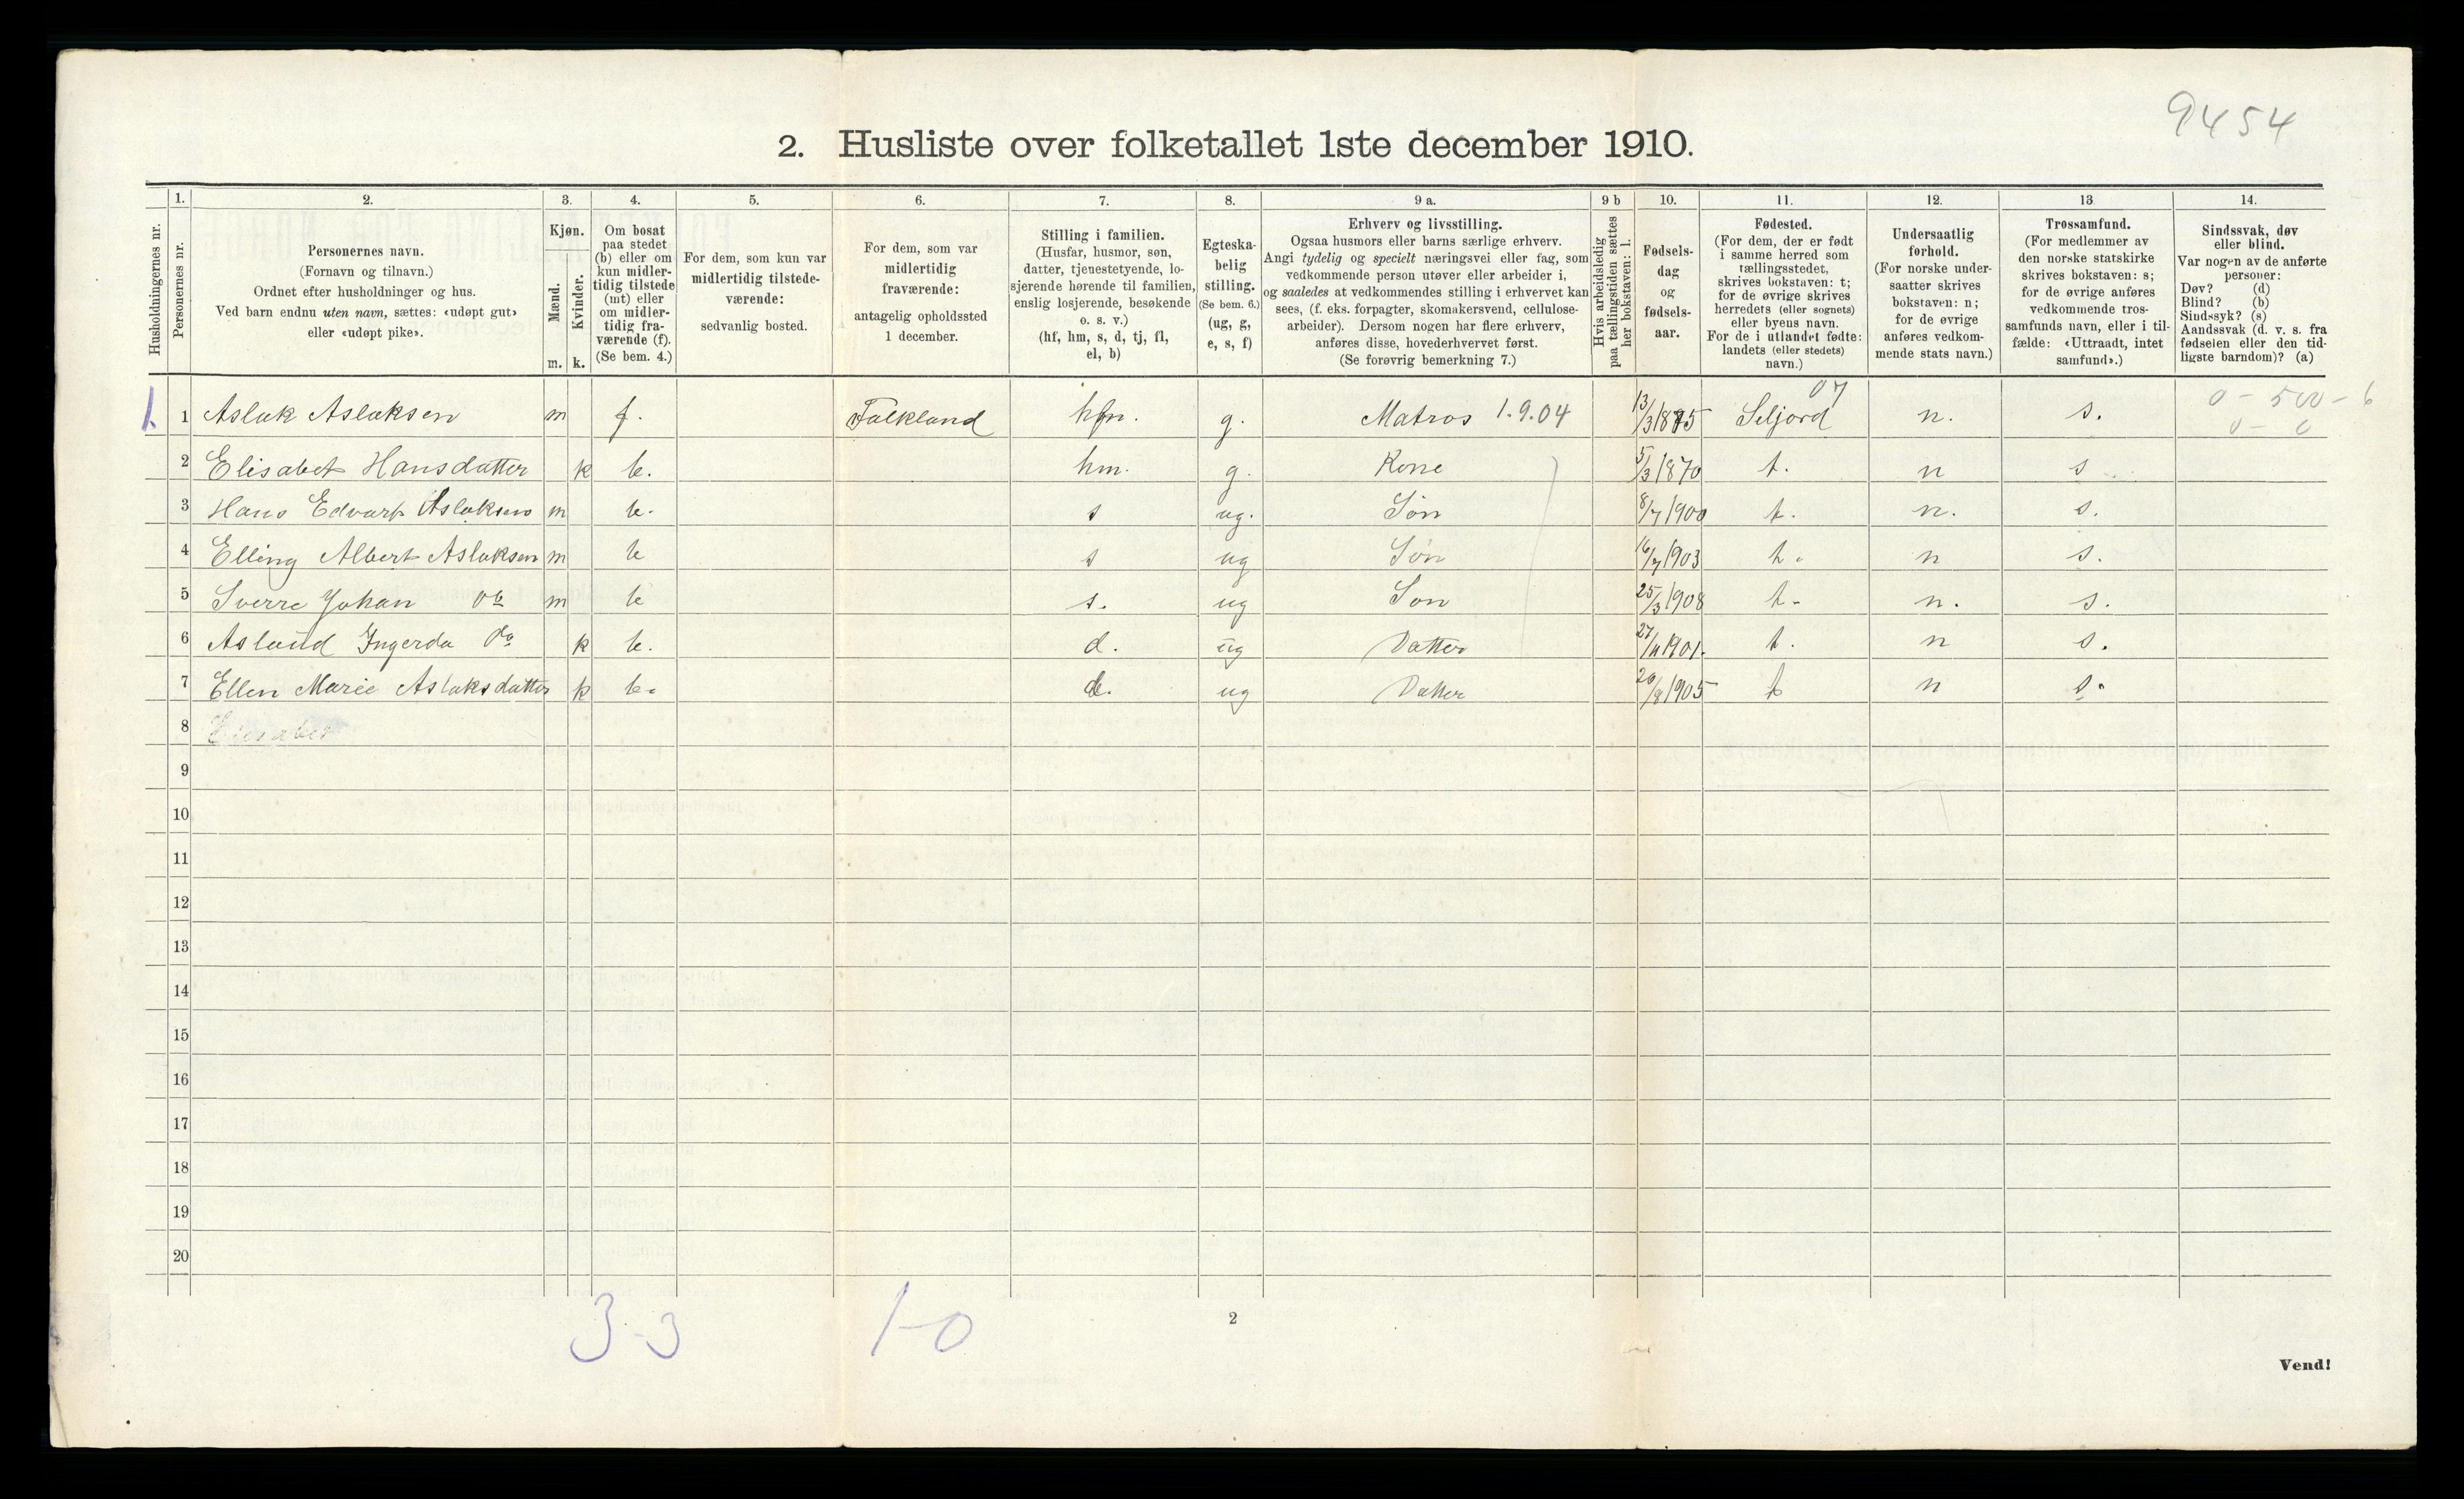 9454
2. Husliste over folketallet 1ste december 1910.
Husholdningernes nr.
1.
Personernes nr.
2.
Personernes navn.
(Fornavn og tilnavn.)
Ordnet efter husholdninger og hus.
Ved barn endnu uten navn, sættes: «udøpt gut»
eller «udøpt pike».
3.
Kjøn.
Mænd.
Kvinder.
m. k.
4.
Om bosat
paa stedet
(b) eller om
kun midler-
tidig tilstede
(mt) eller
om midler-
tidig fra-
værende (f).
(Se bem. 4.)
5.
For dem, som kun var
midlertidig tilstede-
værende:
sedvanlig bosted.
6.
For dem, som var
midlertidig
fraværende:
antagelig opholdssted
1 december.
7.
Stilling i familien.
(Husfar, husmor, søn,
datter, tjenestetyende, lo-
sjerende hørende til familien,
enslig losjerende, besøkende
o. s. v.)
(hf, hm, s, d, tj, fl,
el, b)
8.
Egteska-
belig
stilling.
(Se bem. 6.)
(ug, g,
e, s, f)
9 a.
Erhverv og livsstilling.
Ogsaa husmors eller barns særlige erhverv.
Angi tydelig og specielt næringsvei eller fag, som
vedkommende person utøver eller arbeider i,
og saaledes at vedkommendes stilling i erhvervet kan
sees, (f. eks. forpagter, skomakersvend, cellulose-
arbeider). Dersom nogen har flere erhverv,
anføres disse, hovederhvervet først.
(Se forøvrig bemerkning 7.)
9 b
Hvis arbeidsledig
paa tællingstiden sættes
her bokstaven: l.
10.
Fødsels-
dag
og
fødsels-
aar.
11.
Fødested.
(For dem, der er født
i samme herred som
tællingsstedet,
skrives bokstaven: t;
for de øvrige skrives
herredets (eller sognets)
eller byens navn.
For de i utlandet fødte:
landets (eller stedets)
navn.)
12.
Undersaatlig
forhold.
(For norske under-
saatter skrives
bokstaven: n;
for de øvrige
anføres vedkom-
mende stats navn.)
13
Trossamfund.
(For medlemmer av
den norske statskirke
skrives bokstaven: s;
for de øvrige anføres
vedkommende tros-
samfunds navn, eller i til-
fælde: «Uttraadt, intet
samfund».)
14.
Sindssvak, døv
eller blind.
Var nogen av de anførte
personer:
Døv? (d)
Blind? (b)
Sindssyk? (s)
Aandssvak (d. v. s. fra
fødselen eller den tid-
ligste barndom)? (a)
1. 1 Aslak Aslaksen m f. Falkland g. Matros 1.9.04 13/3 1875 Seljord 07 n. s. 0 - 500 - 6
0 - 0
2 Elisabet Hansdatter k b. hm. g. Kone 5/3 1870 t. n s
3 Hans Edvart Aslaksen m b. s ug. Søn 8/7 1900 t. n. s.
4 Elling Albert Aslaksen m b s ug Søn 16/7 1903 t. n s.
5 Sverre Johan do m b s. ug Søn 25/3 1908 t. n. s.
6 Aslaug Ingerda do k b. d. ug Datter 27/11 1901. t. n s.
7 Ellen Marie Aslaksdatter k b. d. ug Datter 20/8 1905 t n s.
8 Elisabet
9
10
11
12
13
14
15
16
17
18
19
20
3-3 1-0
2
Vend!